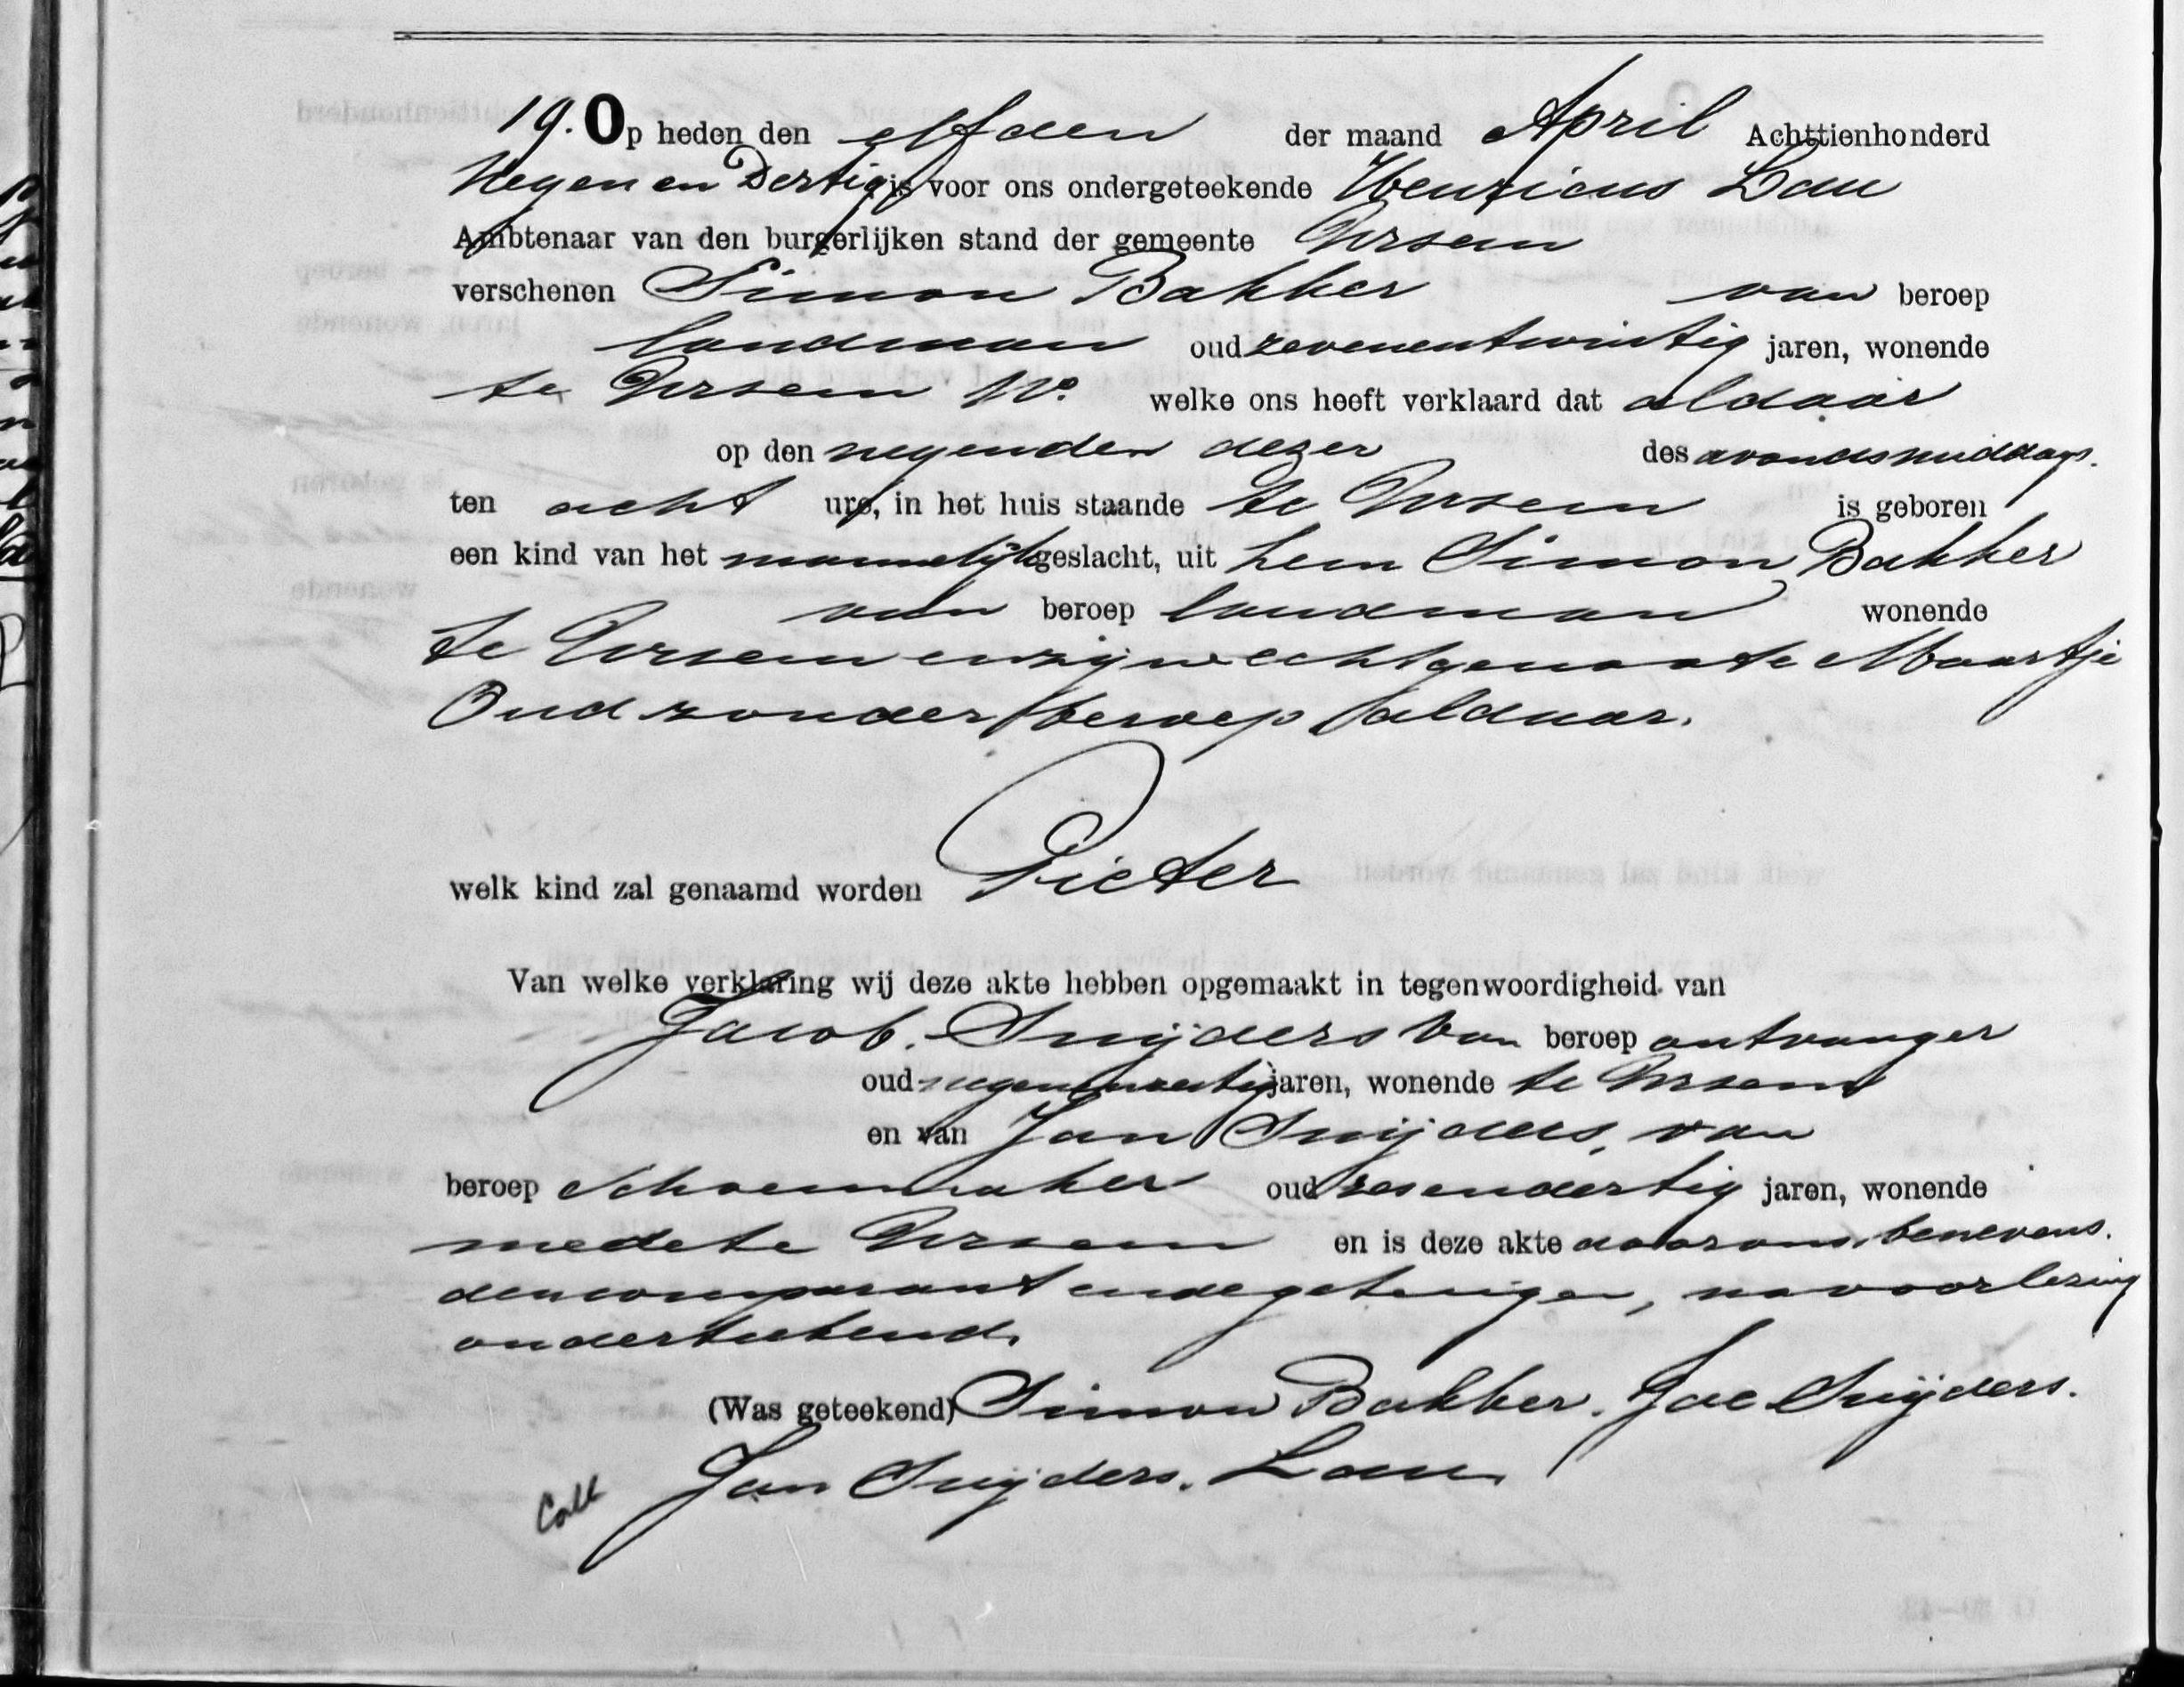 19. Op heden den elfden der maand April Achttienhonderd
Negen en Dertig is voor ons ondergeteekende Henricus Lau
Ambtenaar van den burgerlijken stand der gemeente Ursem
verschenen Simon Bakker van beroep
landman oud zevenentwintig jaren, wonende
te Ursem welke ons heeft verklaard dat aldaar
op den negenden dezer des avonds middags.
ten acht ure, in het huis staande te Ursem is geboren
een kind van het mannelijk geslacht, uit hem Simon Bakker
van beroep landman wonende
te Ursem en zijn echtgenoote Maartje
Oud zonder beroep aldaar.
welk kind zal genaamd worden Pieter
Van welke verklaring wij deze akte hebben opgemaakt in tegenwoordigheid van
Jacob. Snijders van beroep ontvanger
oud jaren, wonende te Ursem
en van Jan Snijders, van
beroep Schoenmaker oud zesendertig jaren, wonende
mede te Ursem en is deze akte door ons, benevens.
den comparant en de getuigen, na voorlezing
onderteekend.
(Was geteekend) Simon Bakker. Jac Snijders.
Jan Snijders. Lau.
Coll